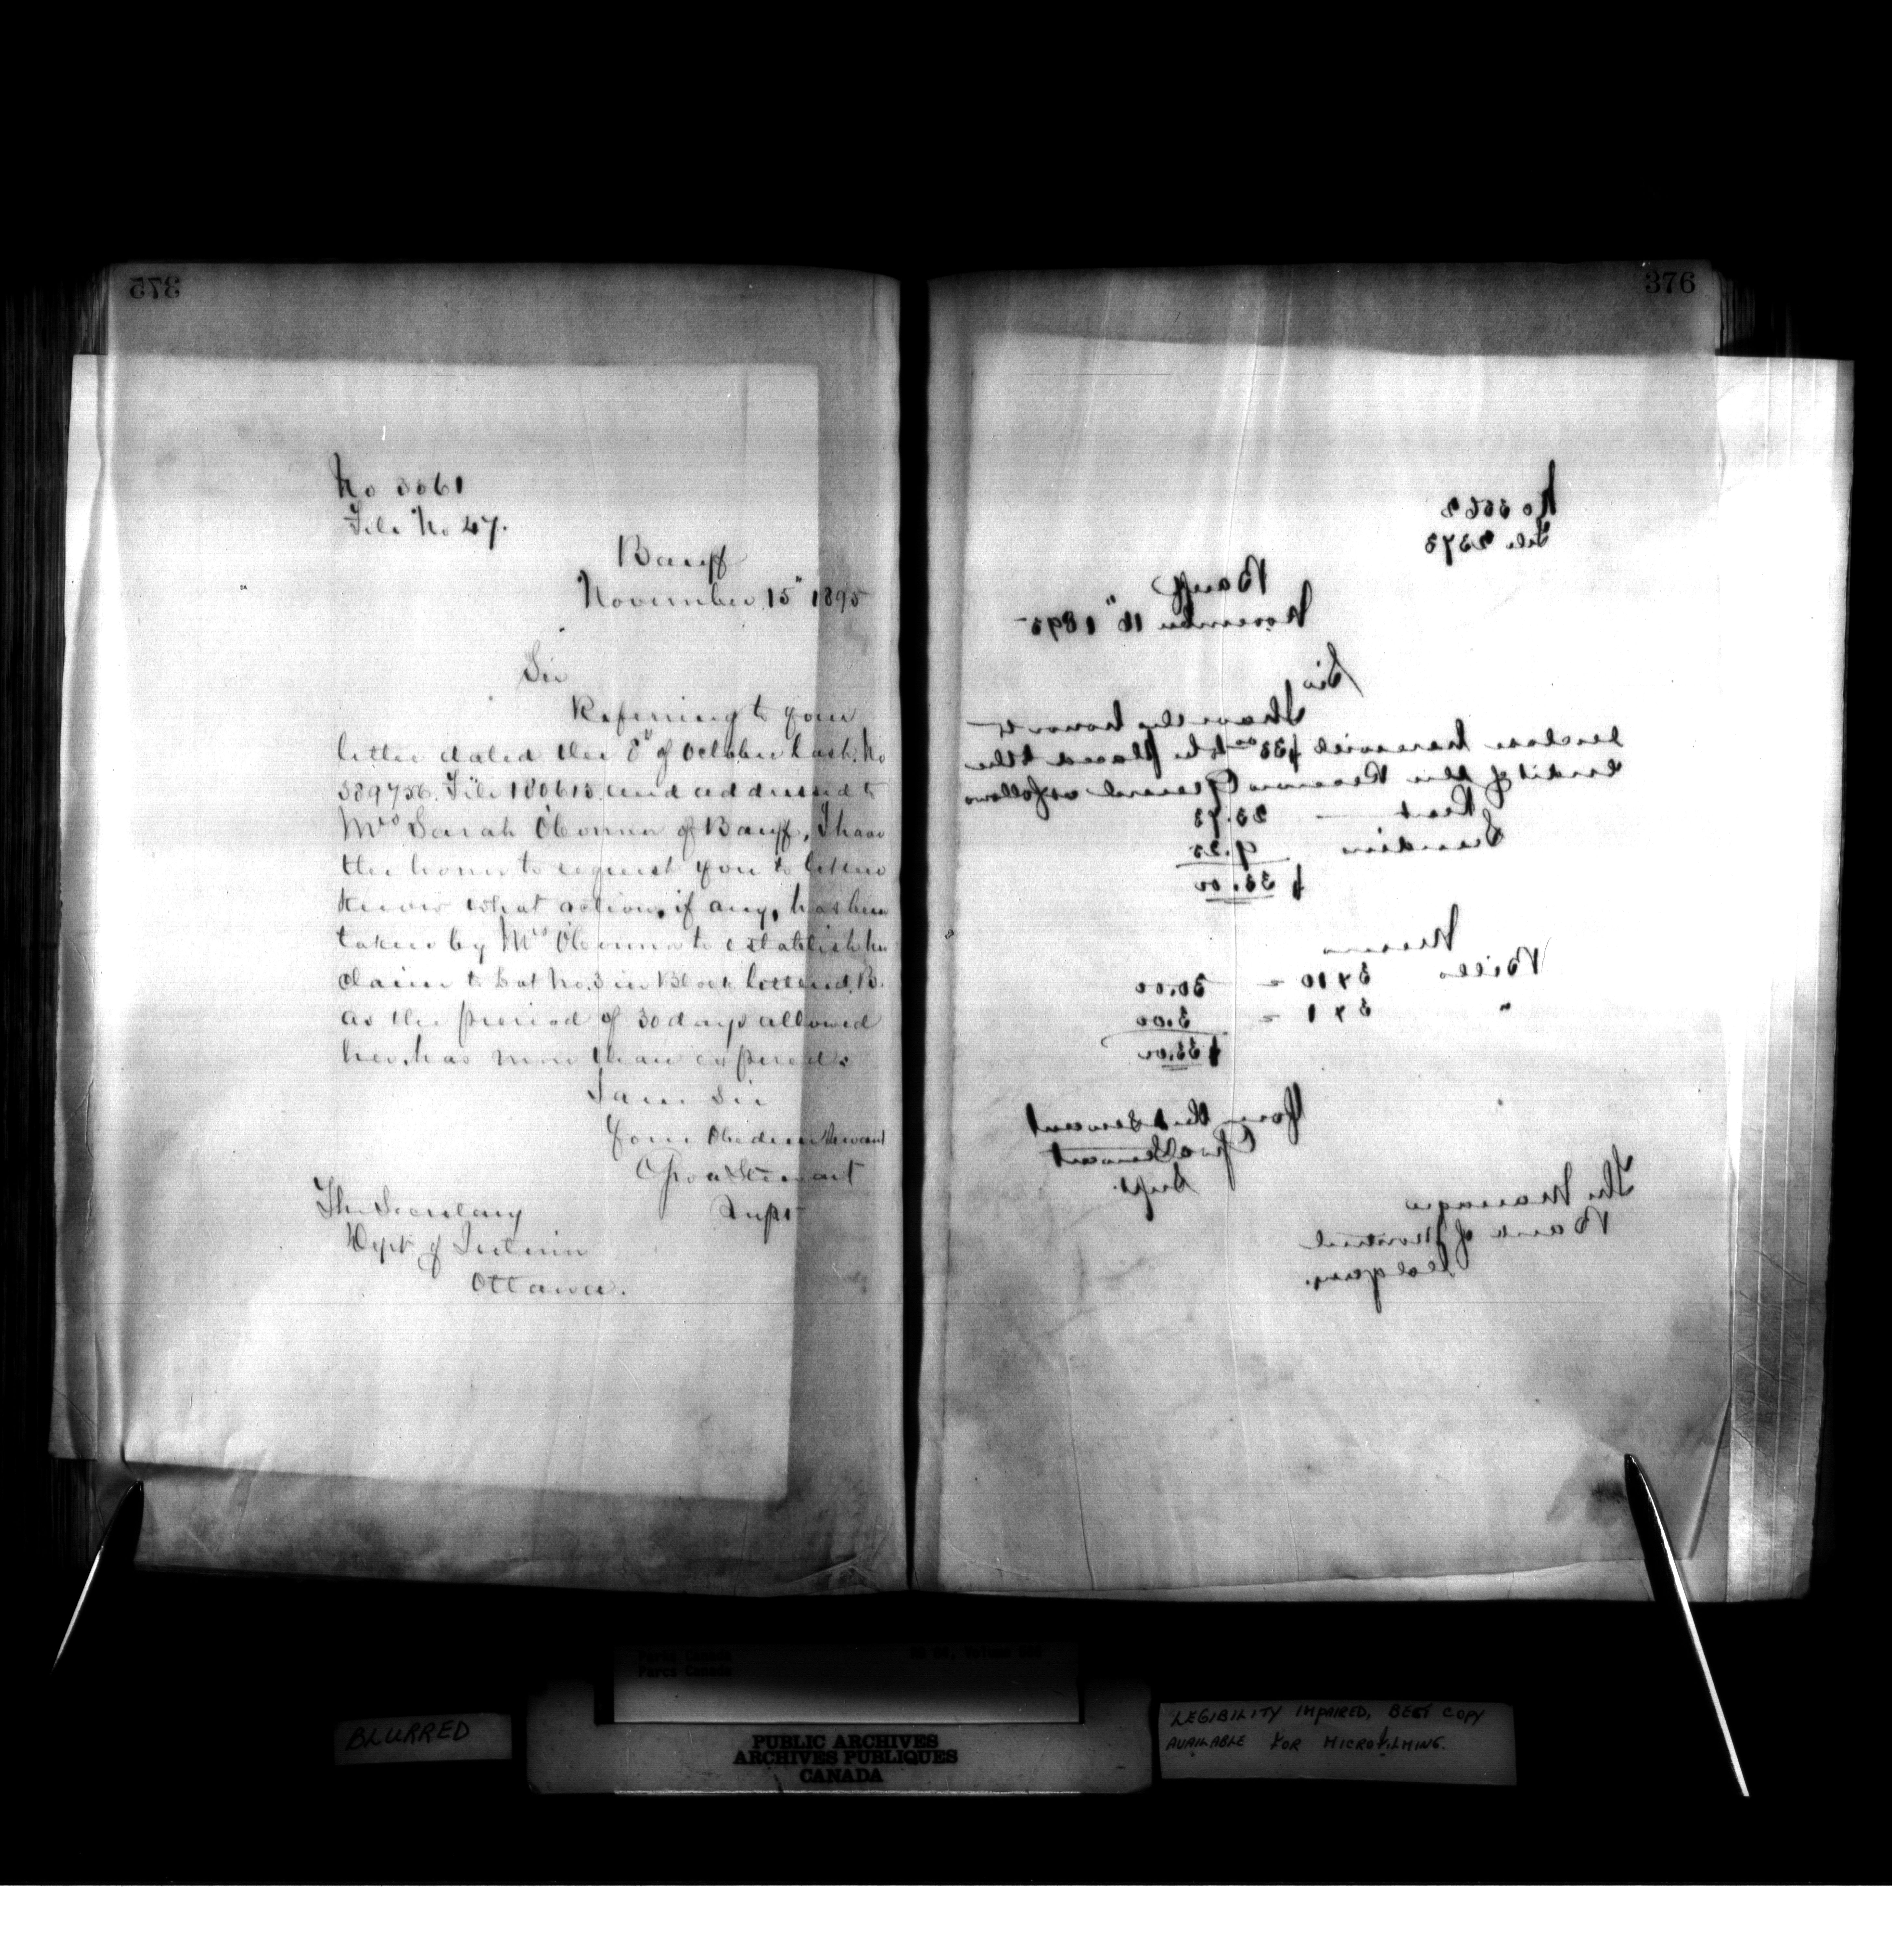 375
No 3061
File No 47.
Banff
November 15" 1895
Sir
Referring to your
letter dated the 8th of October last. No
389756. File 180613. and addressed to
Mrs Sarah OConnor of Banff, I have
the honor to request you to let me
know what action, if any, has been
taken by Mrs OConnor to establish her
claim to Lot No. 3 in Block lettered B.
as the period of 30 days allowed
her, has more than expired.
I am Sir
Your Obedient Servant
Geo A Stewart
Supt
The Secretary
Dept of Interior
Ottawa.
376
No 3062
File 2373
Banff
November 16" 1895
Sir
I have the honor to
enclose herewith $33.00 to be placed to the
credit of the Receiver General as follows
Rent — 23.75
Sundries 9.25
$33.00
Means
Bills 3 x 10 = 30.00
" 3 x 1 = 3.00
$33.00
Your Obt Servant
Geo A Stewart
Supt.
The Manager
Bank of Montreal
Calgary.
Parks Canada
Parcs Canada
BLURRED
PUBLIC ARCHIVES
ARCHIVES PUBLIQUES
CANADA
LEGIBILITY IMPAIRED, BEST COPY
AVAILABLE FOR MICROFILMING.